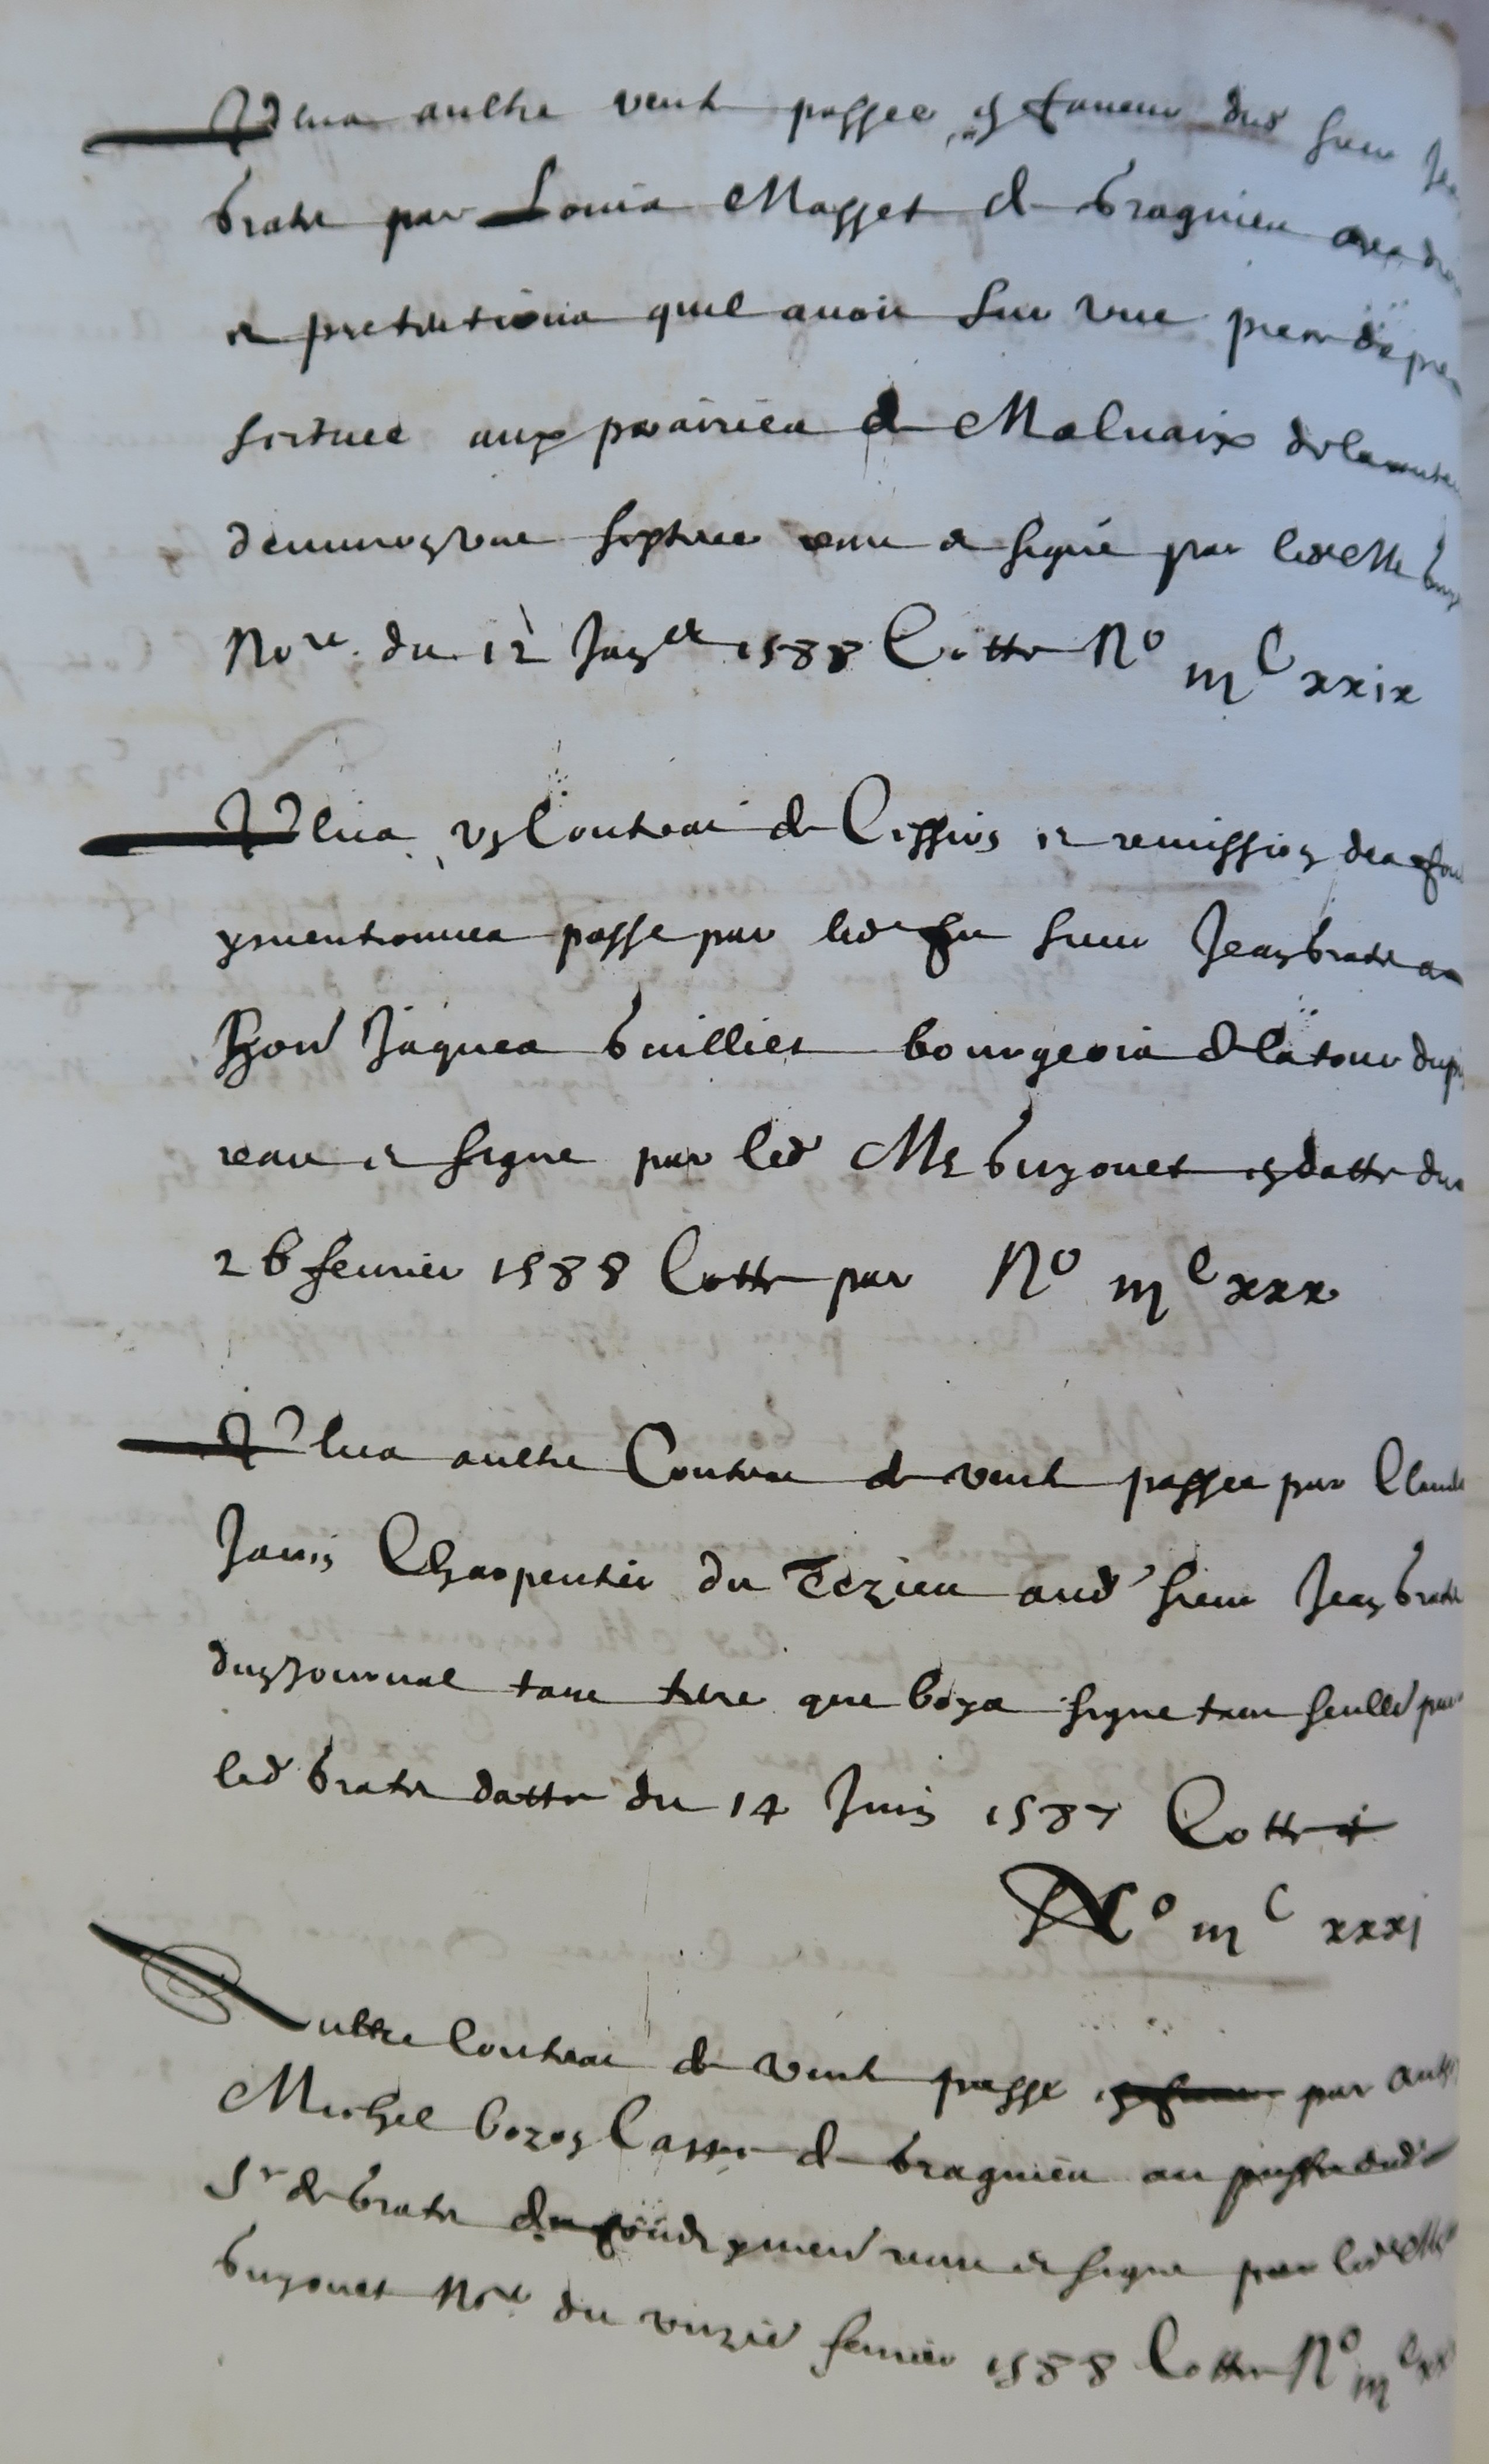 Plus aultre vente passee en faveur dud sieur Jea
brate par Louis Masset de bragnieu des
et pretentions quil avoit sur une piece de pre
sittuee aux prairies de Malvaix de la contenu
denviron une septiree receu et signé par led Me buy
Nore. du 12 Janer 1588 Cotte No iijC xxix
Plus un Contract de Cession et remission des fon
y mentionnes passe par led feu sieur Jean brate a
hono Jaques builliet bourgeois de la tour dupi
receu et signe par led Me buyonet en datte du
26 fevrier 1588 Cotte par No iijC xxx
Plus aultre Contract de vente passee par Claude
Janin Charpentier du Tezieu aud sieur Jean brate
dun journal tant terre que boys signe tan seullet par
led brate datte du 14 Juin 1587 Cotte
No iijC xxxj
Aultre Contract de vente passe par ant
Michel bozon Casset de bragnieu au proffit dud
Sr de brate de fonds y men receu et signe par led Me
buyonet Nore du unzie fevrier 1588 Cotte No iijC xx